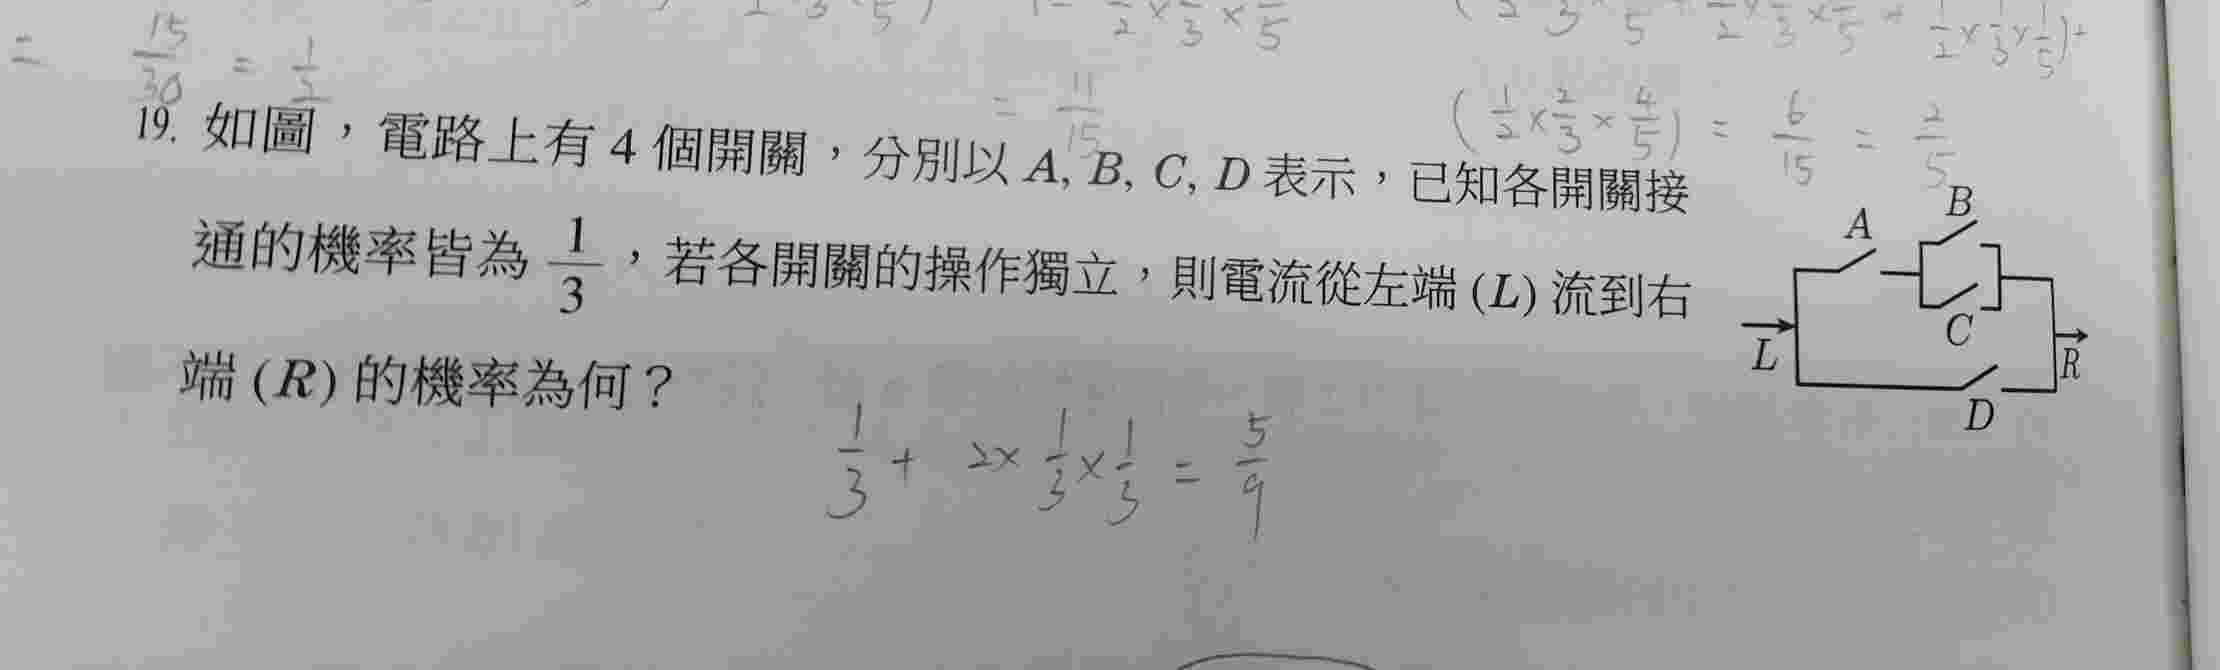 = 15/30 = 1/2
= 11/15
(1/2 × 2/3 × 4/5) = 6/15 = 2/5
19. 如圖，電路上有 4 個開關，分別以 A, B, C, D 表示，已知各開關接
通的機率皆為 1/3，若各開關的操作獨立，則電流從左端 (L) 流到右
端 (R) 的機率為何？
A
B
C
L
R
D
1/3 + 2× 1/3 × 1/3 = 5/9